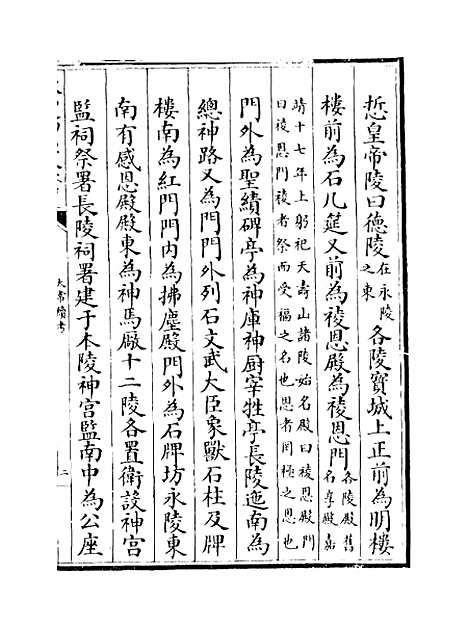 悊皇帝陵曰德陵在永陵之東各陵寳城上正前為明樓
樓前為石几筵又前為祾恩殿為祾恩門各陵殿舊名享殿嘉
靖十七年上躬祀天壽山諸陵始名殿曰祾恩殿門
曰祾恩門祾者祭而受福之名也恩者罔極之恩也
門外為聖績碑亭為神庫神厨宰牲亭長陵迤南為
總神路又為門門外列石文武大臣象獸石柱及牌
樓南為紅門門内為拂塵殿門外為石牌坊永陵東
南有感恩殿殿東為神馬廠十二陵各置衛設神宫
監祠祭署長陵祠署建于本陵神宫監南中為公座
太常續考
二